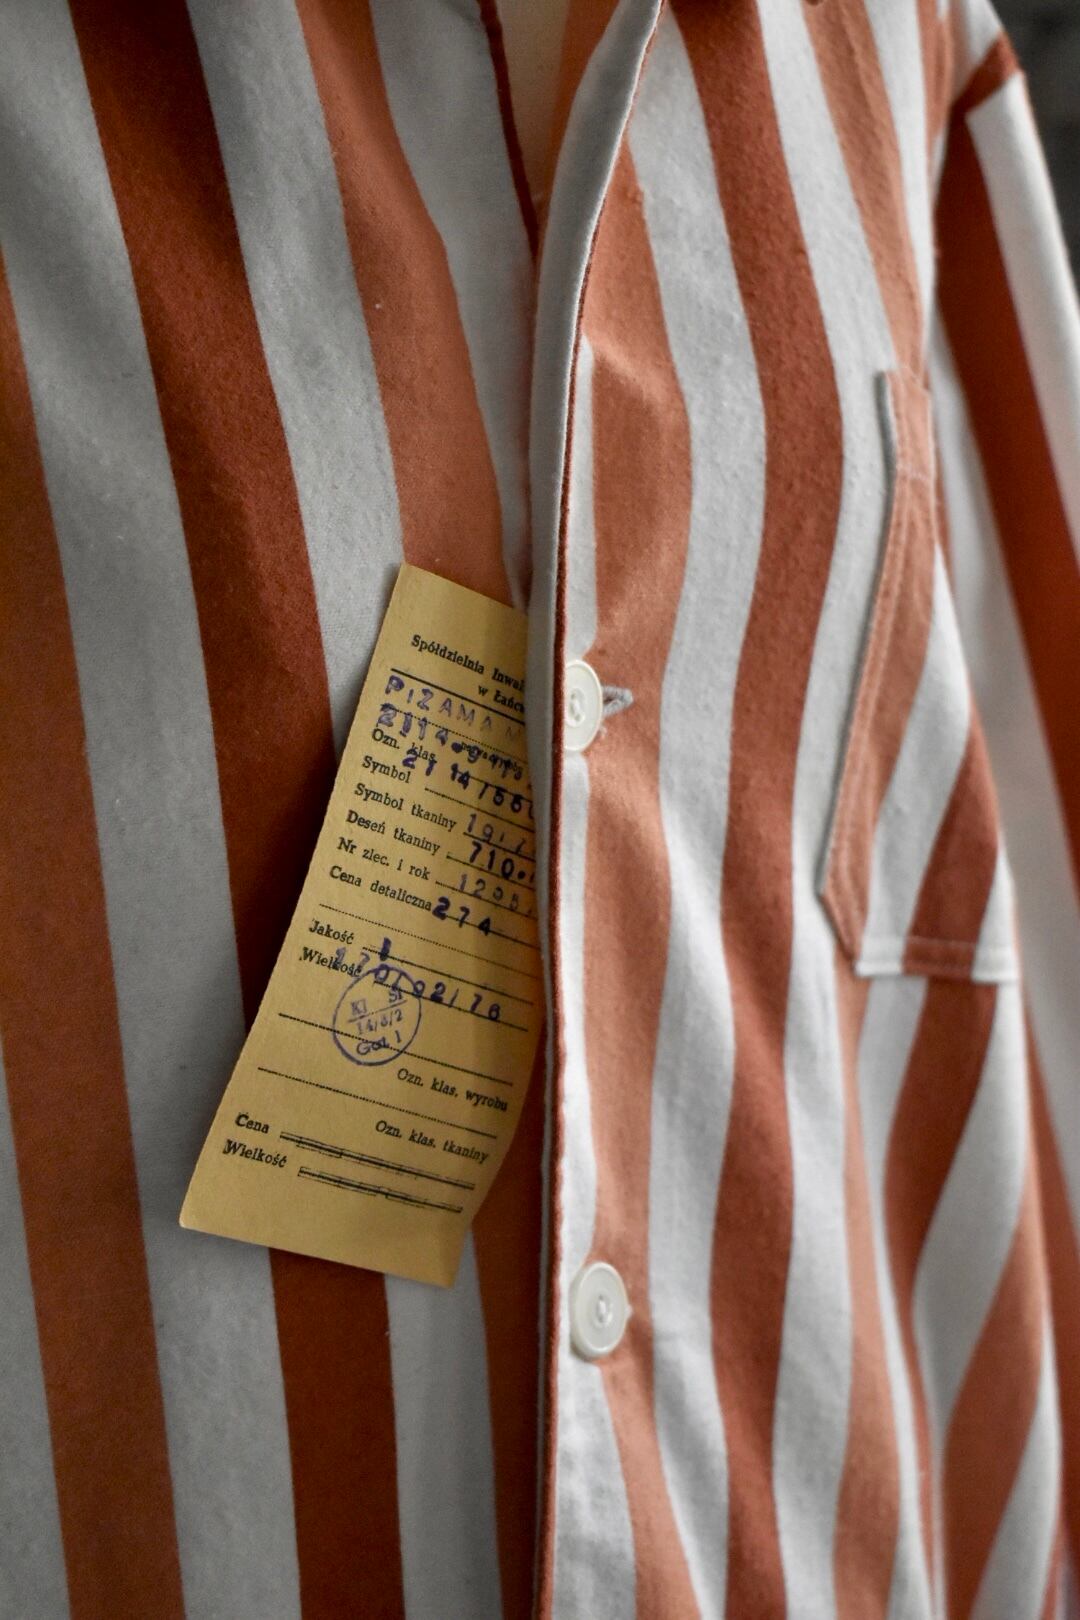 Spółdzielnia Inwal
w Łańc
PIŻAMA M
Ozn. klas.
Symbol 21 14/558
Symbol tkaniny 1917
Deseń tkaniny 710.
Nr zlec. i rok 1208
Cena detaliczna 274
Jakość I
Wielkość 170/92/76
KJ St
14/8/2
Gat I
Ozn. klas. wyrobu
Ozn. klas. tkaniny
Cena
Wielkość